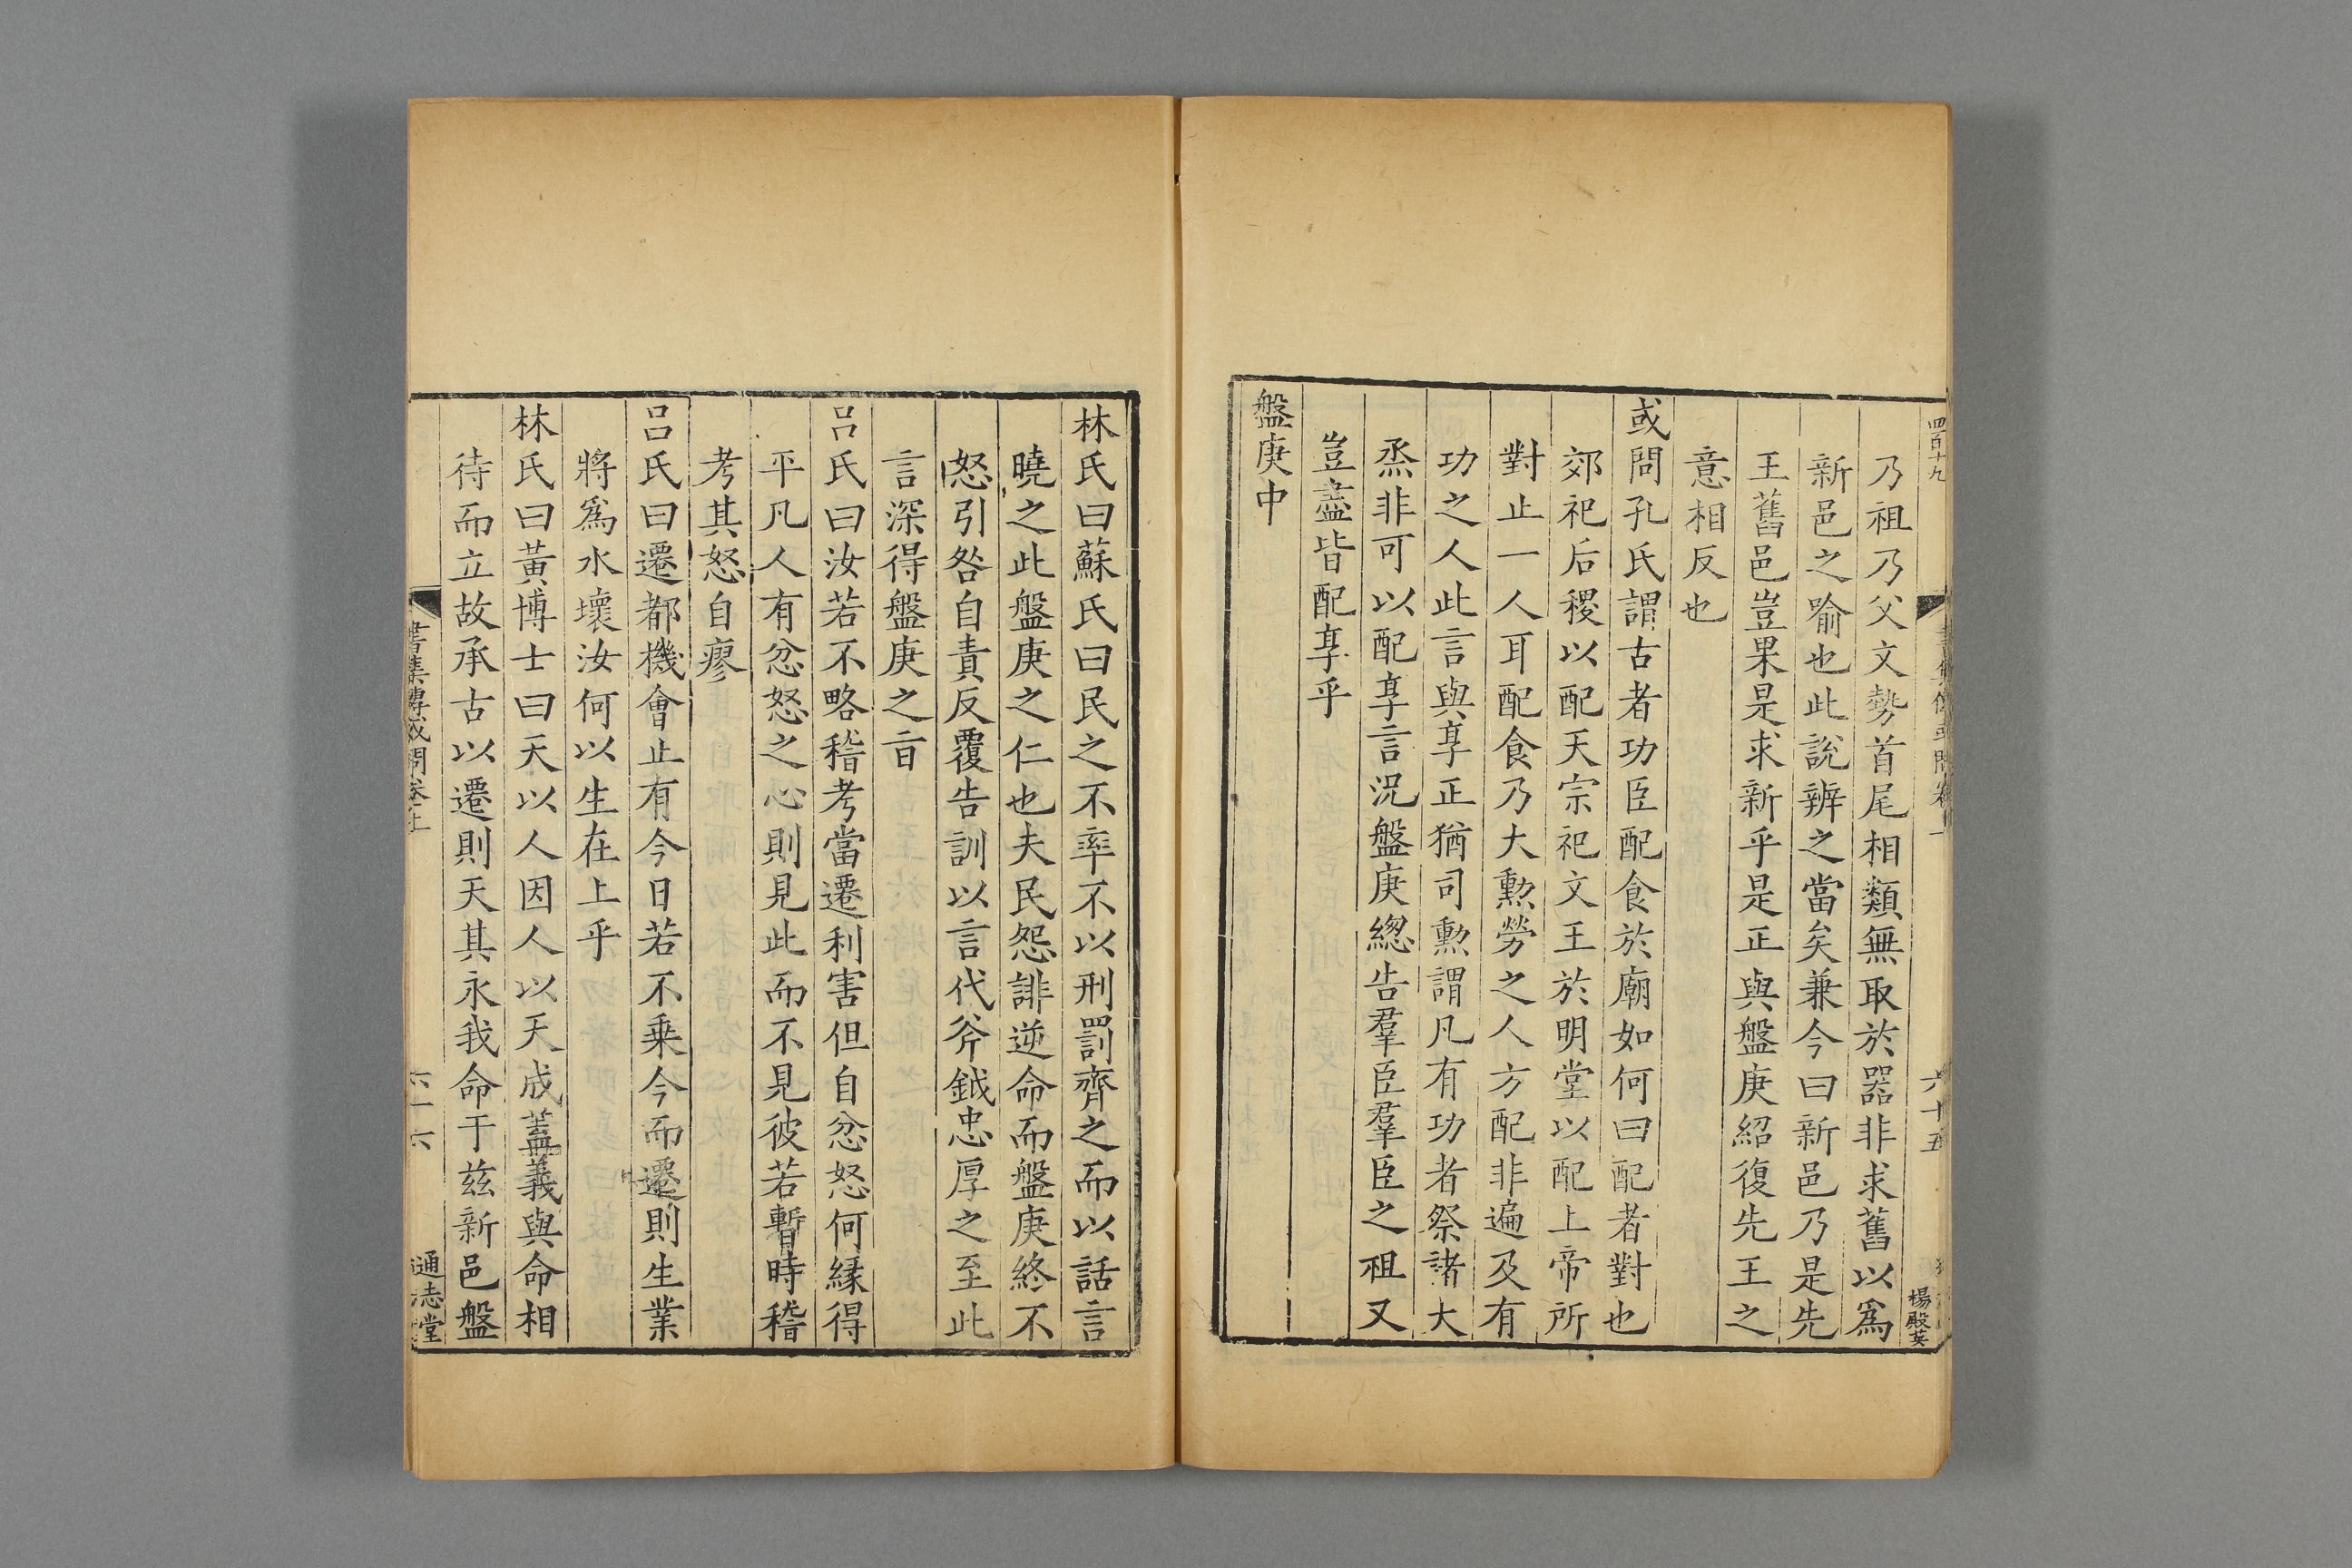 四百十九
六十五
楊殿英
乃祖乃父文勢首尾相類無取於器非求舊以爲
新邑之喻也此說辨之當矣兼今曰新邑乃是先
王舊邑豈果是求新乎是正與盤庚紹復先王之
意相反也
或問孔氏謂古者功臣配食於廟如何曰配者對也
郊祀后稷以配天宗祀文王於明堂以配上帝所
對止一人耳配食乃大勲勞之人方配非遍及有
功之人此言與享正猶司勲謂凡有功者祭諸大
烝非可以配享言況盤庚緫告羣臣羣臣之祖又
豈盡皆配享乎
盤庚中
林氏曰蘇氏曰民之不率不以刑罰齊之而以話言
曉之此盤庚之仁也夫民怨誹逆命而盤庚終不
怒引咎自責反覆告訓以言代斧鉞忠厚之至此
言深得盤庚之旨
呂氏曰汝若不略稽考當遷利害但自忿怒何縁得
平凡人有忿怒之心則見此而不見彼若暫時稽
考其怒自瘳
呂氏曰遷都機會止有今日若不乗今而遷則生業
將爲水壞汝何以生在上乎
林氏曰黃博士曰天以人因人以天成蓋義與命相
待而立故承古以遷則天其永我命于兹新邑盤
書集傳或問卷上
通志堂